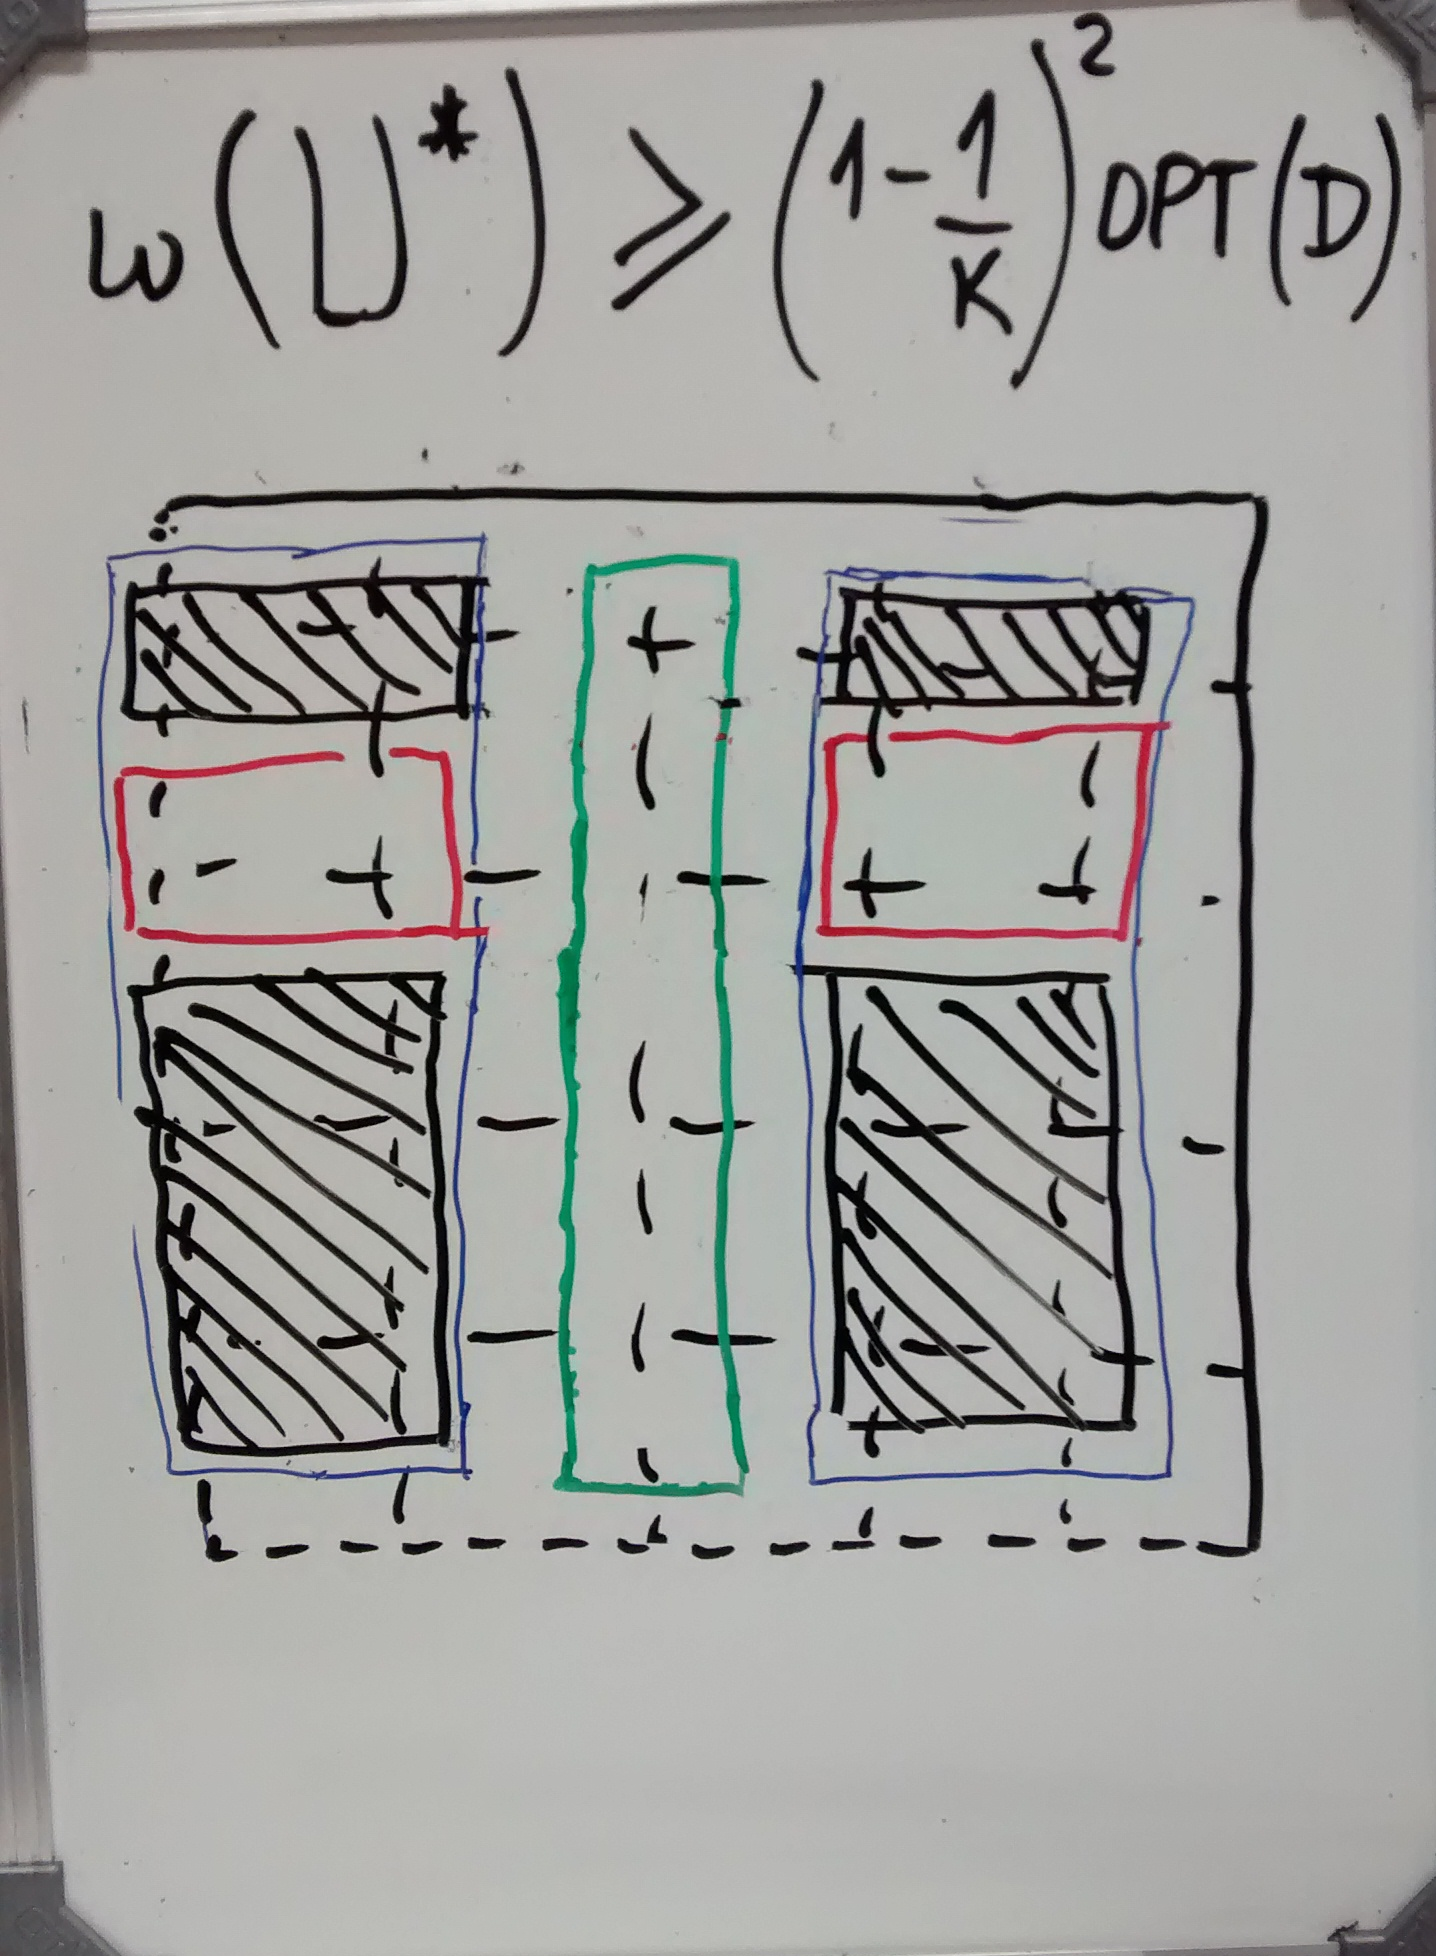 w(U*) ⩾ (1-1/K)² OPT(D)